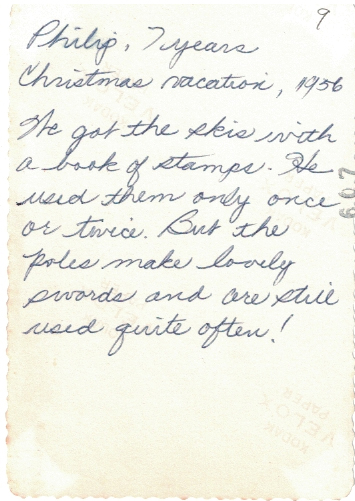 9
Philip, 7 years
Christmas vacation, 1956
We got the skis with
a book of stamps. He
used them only once
or twice. But the
poles make lovely
swords and are still
used quite often!
607
VELOX
KODAK
VELOX
PAPER
KODAK
VELOX
PAPER